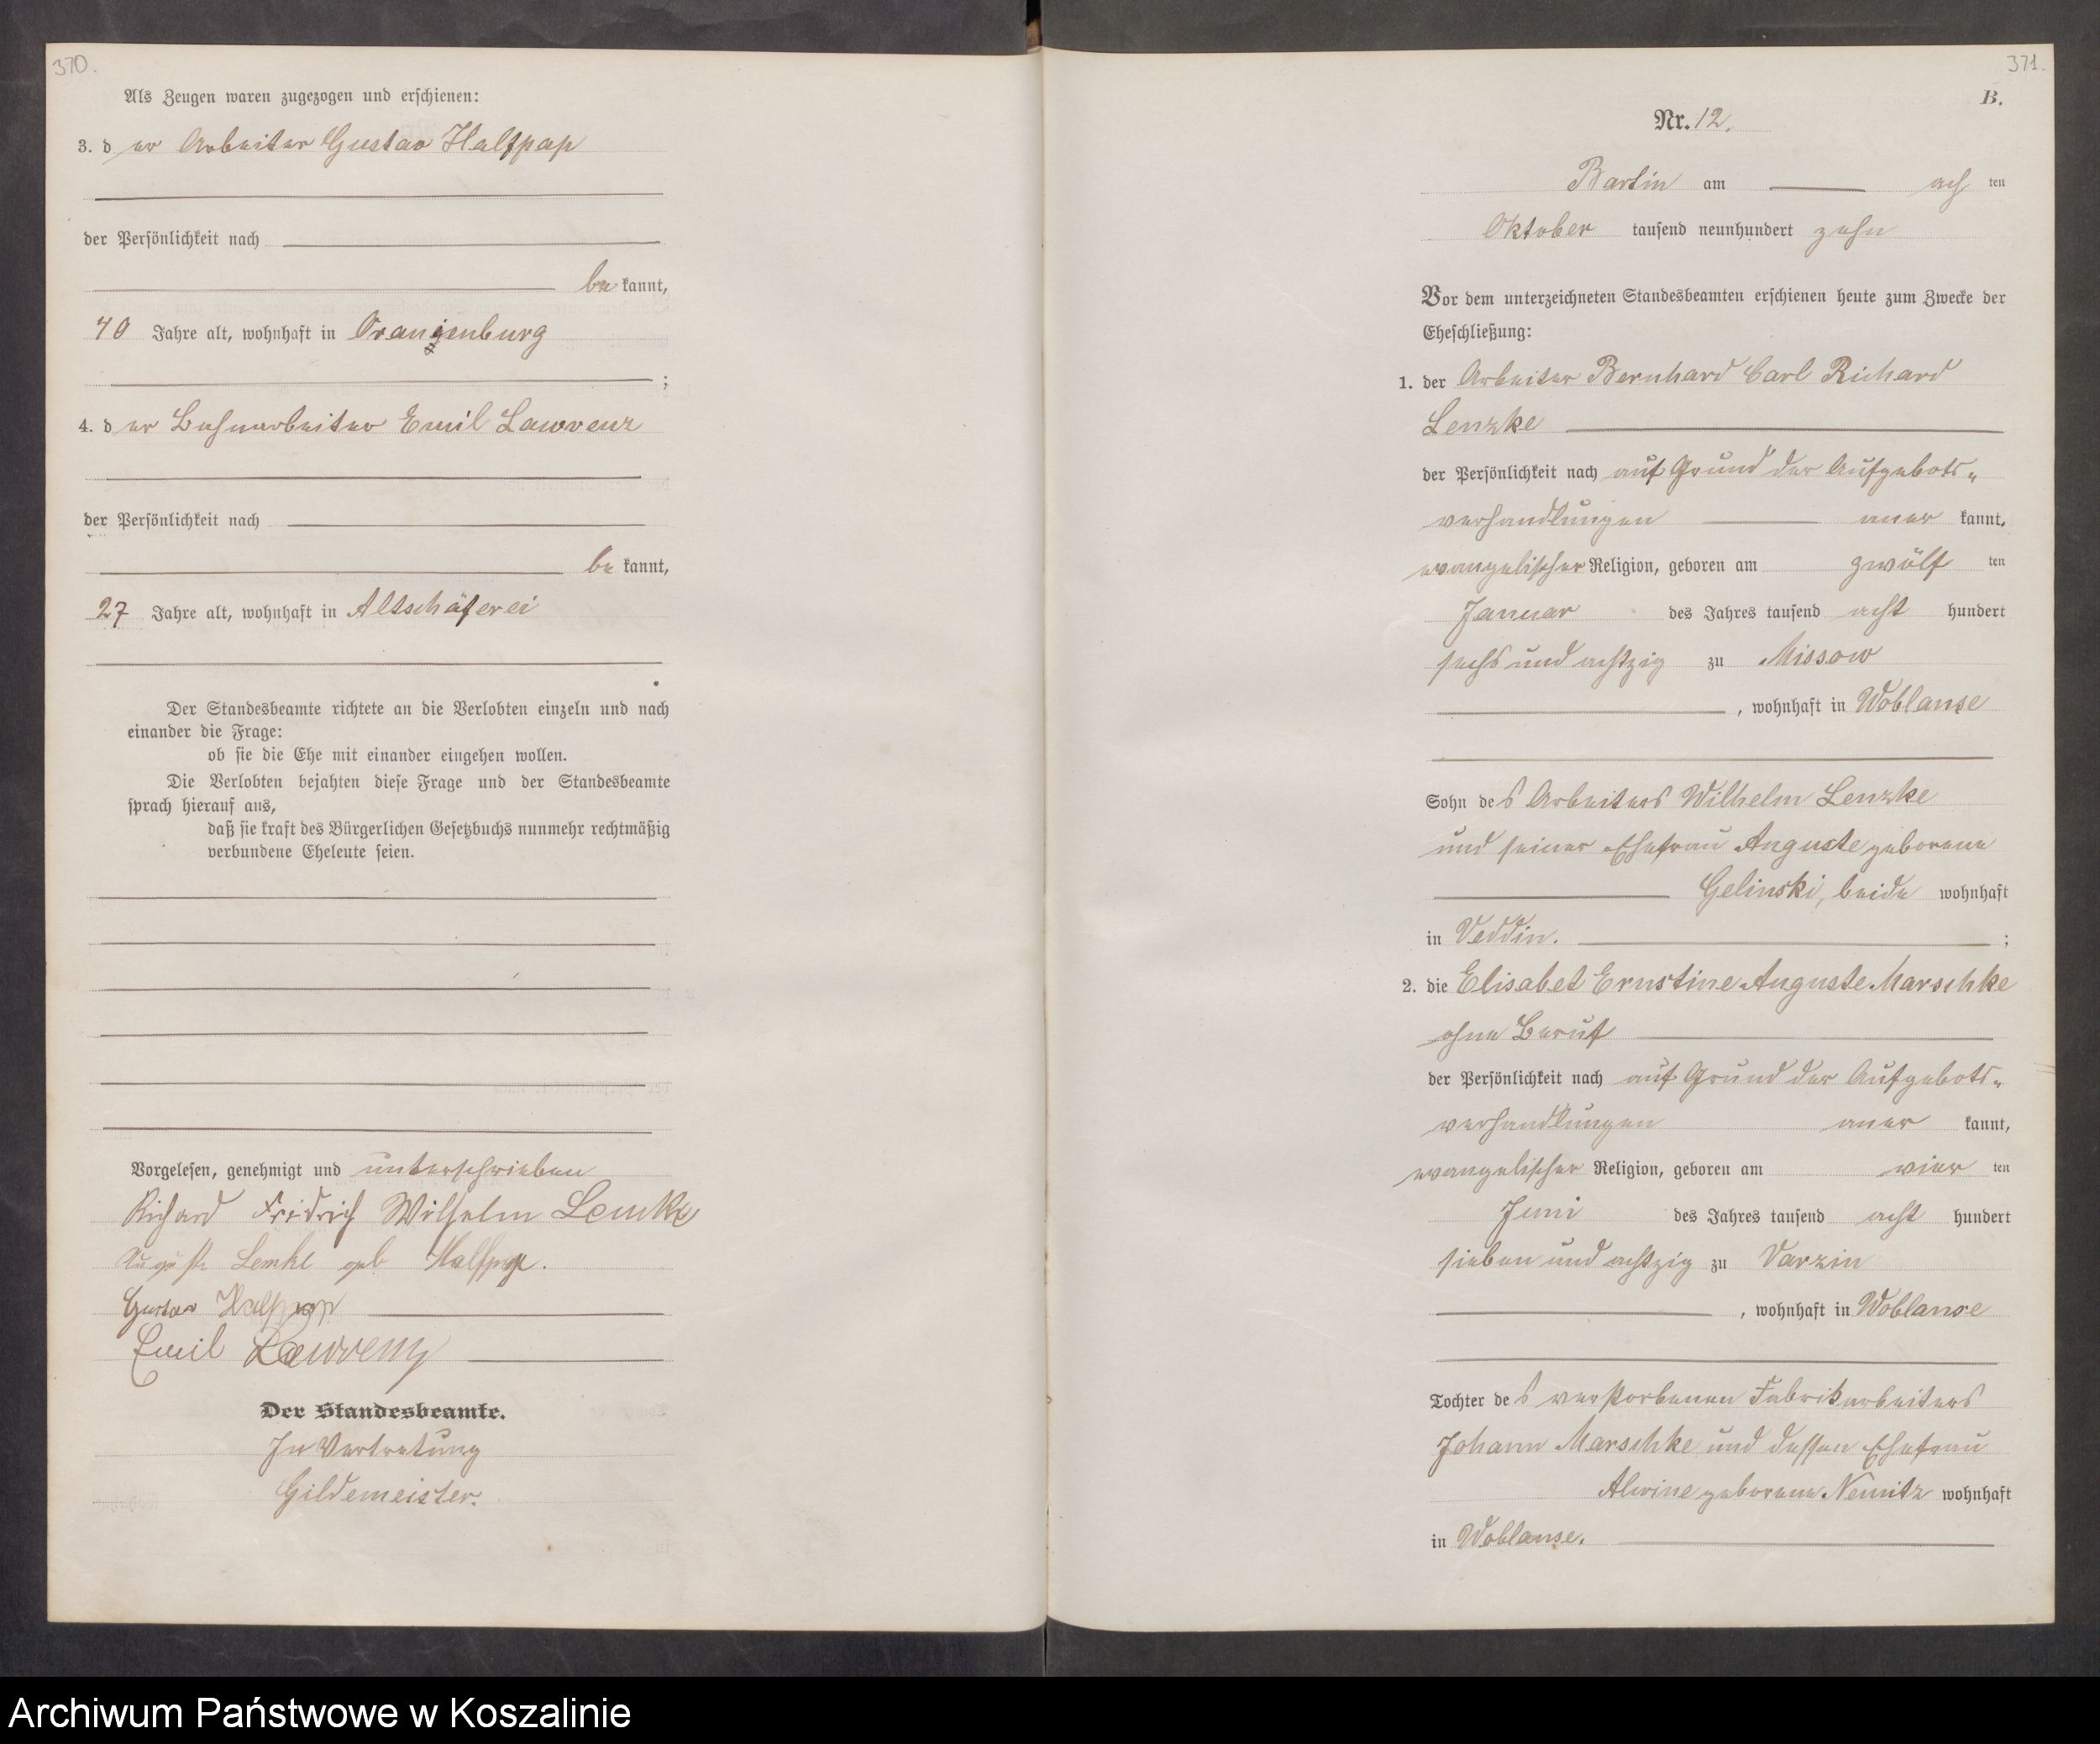 370.
Als Zeugen waren zugezogen und erschienen:
3. der Arbeiter Gustav Halfpap
der Persönlichkeit nach
be kannt,
70 Jahre alt, wohnhaft in Oranienburg
;
4. der Bahnarbeiter Emil Lawrenz
der Persönlichkeit nach
be kannt,
27 Jahre alt, wohnhaft in Altschäferei
.
Der Standesbeamte richtete an die Verlobten einzeln und nach
einander die Frage:
ob sie die Ehe mit einander eingehen wollen.
Die Verlobten bejahten diese Frage und der Standesbeamte
sprach hierauf aus,
daß sie kraft des Bürgerlichen Gesetzbuchs nunmehr rechtmäßig
verbundene Eheleute seien.
Vorgelesen, genehmigt und unterschrieben
Richard Fridrich Wilhelm Lemke
Auguste Lemke geb Halfpap.
Gustav Halfpap
Emil Lawrenz
Der Standesbeamte.
In Vertretung
Gildemeister.
371.
B.
Nr. 12.
Bartin am ach ten
Oktober tausend neunhundert zehn
Vor dem unterzeichneten Standesbeamten erschienen heute zum Zwecke der
Eheschließung:
1. der Arbeiter Bernhard Carl Richard
Lenzke
der Persönlichkeit nach auf Grund der Aufgebots-
verhandlungen aner kannt,
evangelischer Religion, geboren am zwölf ten
Januar des Jahres tausend acht hundert
sechs und achtzig zu Missow
, wohnhaft in Woblanse
Sohn des Arbeiters Wilhelm Lenzke
und seiner Ehefrau Auguste geborene
Gelinski, beide wohnhaft
in Veddin. ;
2. die Elisabet Ernstine Auguste Marschke
ohne Beruf
der Persönlichkeit nach auf Grund der Aufgebots-
verhandlungen aner kannt,
evangelischer Religion, geboren am vier ten
Juni des Jahres tausend acht hundert
sieben und achtzig zu Varzin
, wohnhaft in Woblanse
Tochter des verstorbenen Fabrikarbeiters
Johann Marschke und dessen Ehefrau
Alwine geborene Nemitz wohnhaft
in Woblanse.
Archiwum Państwowe w Koszalinie